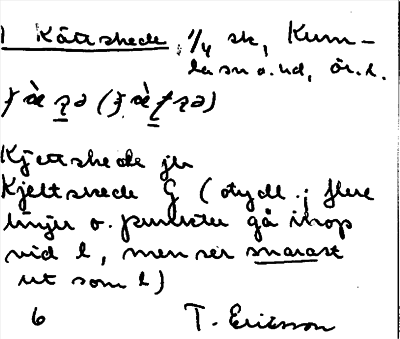 1 Kättshede, 1/4 sk, Kum-
la sn o. hd, Ör. l.
Kjettshede jb
Kjeltsnede G (otydl.; flere
linjer o. punkter gå ihop
vid l, men ser snarast
ut som l)
6 T. Ericsson